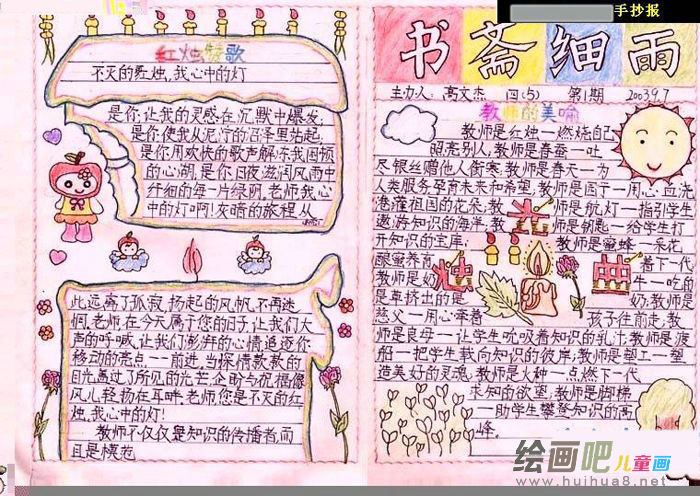 手抄报
红烛颂歌
不灭的红烛,我心中的灯
是你,让我的灵感在沉默中爆发;
是你,使我从泥泞的沼泽里站起;
是你,用欢快的歌声解冻我困顿
的心湖,是你,日夜滋润风雨中
纤细的每一片绿阴,老师,我心
中的灯啊!灰暗的旅程从
此远离了孤寂,扬起的风帆,不再迷
惘,老师,在今天属于您的日子,让我们大
声的呼喊,让我们澎湃的心情追逐你
移动的亮点——前进,当深情款款的
目光盖过了所见的光芒,企盼与祝福像
风儿轻扬在耳畔,老师,您是不灭的红
烛,我心中的灯!
教师不仅仅是知识的传播者,而
且是模范
书斋细雨
主办人:高文杰 四(5) 第1期 2003.9.7
教师的美喻
教师是红烛—燃烧自己
照亮别人,教师是春蚕—吐
尽银丝赠他人御寒,教师是春天—为
人类服务孕育未来和希望,教师是园丁—用心血浇
港灌祖国的花朵,教师是航灯—指引学生
遨游知识的海洋,教师是钥匙—给学生打
开知识的宝库,教师是蜜蜂—采花
酿蜜养育着下一代
教师是奶牛—吃的
是草挤出的是奶,教师是
慈父—用心牵着孩子往前走,教
师是良母—让学生吮吸着知识的乳汁,教师是渡
船—把学生载向知识的彼岸,教师是塑工—塑
造美好的灵魂,教师是火种—点燃下一代
求知的欲望,教师是脚梯
—助学生攀登知识的高
峰.
光
烛
典
绘画吧儿童画
www.huihua8.net